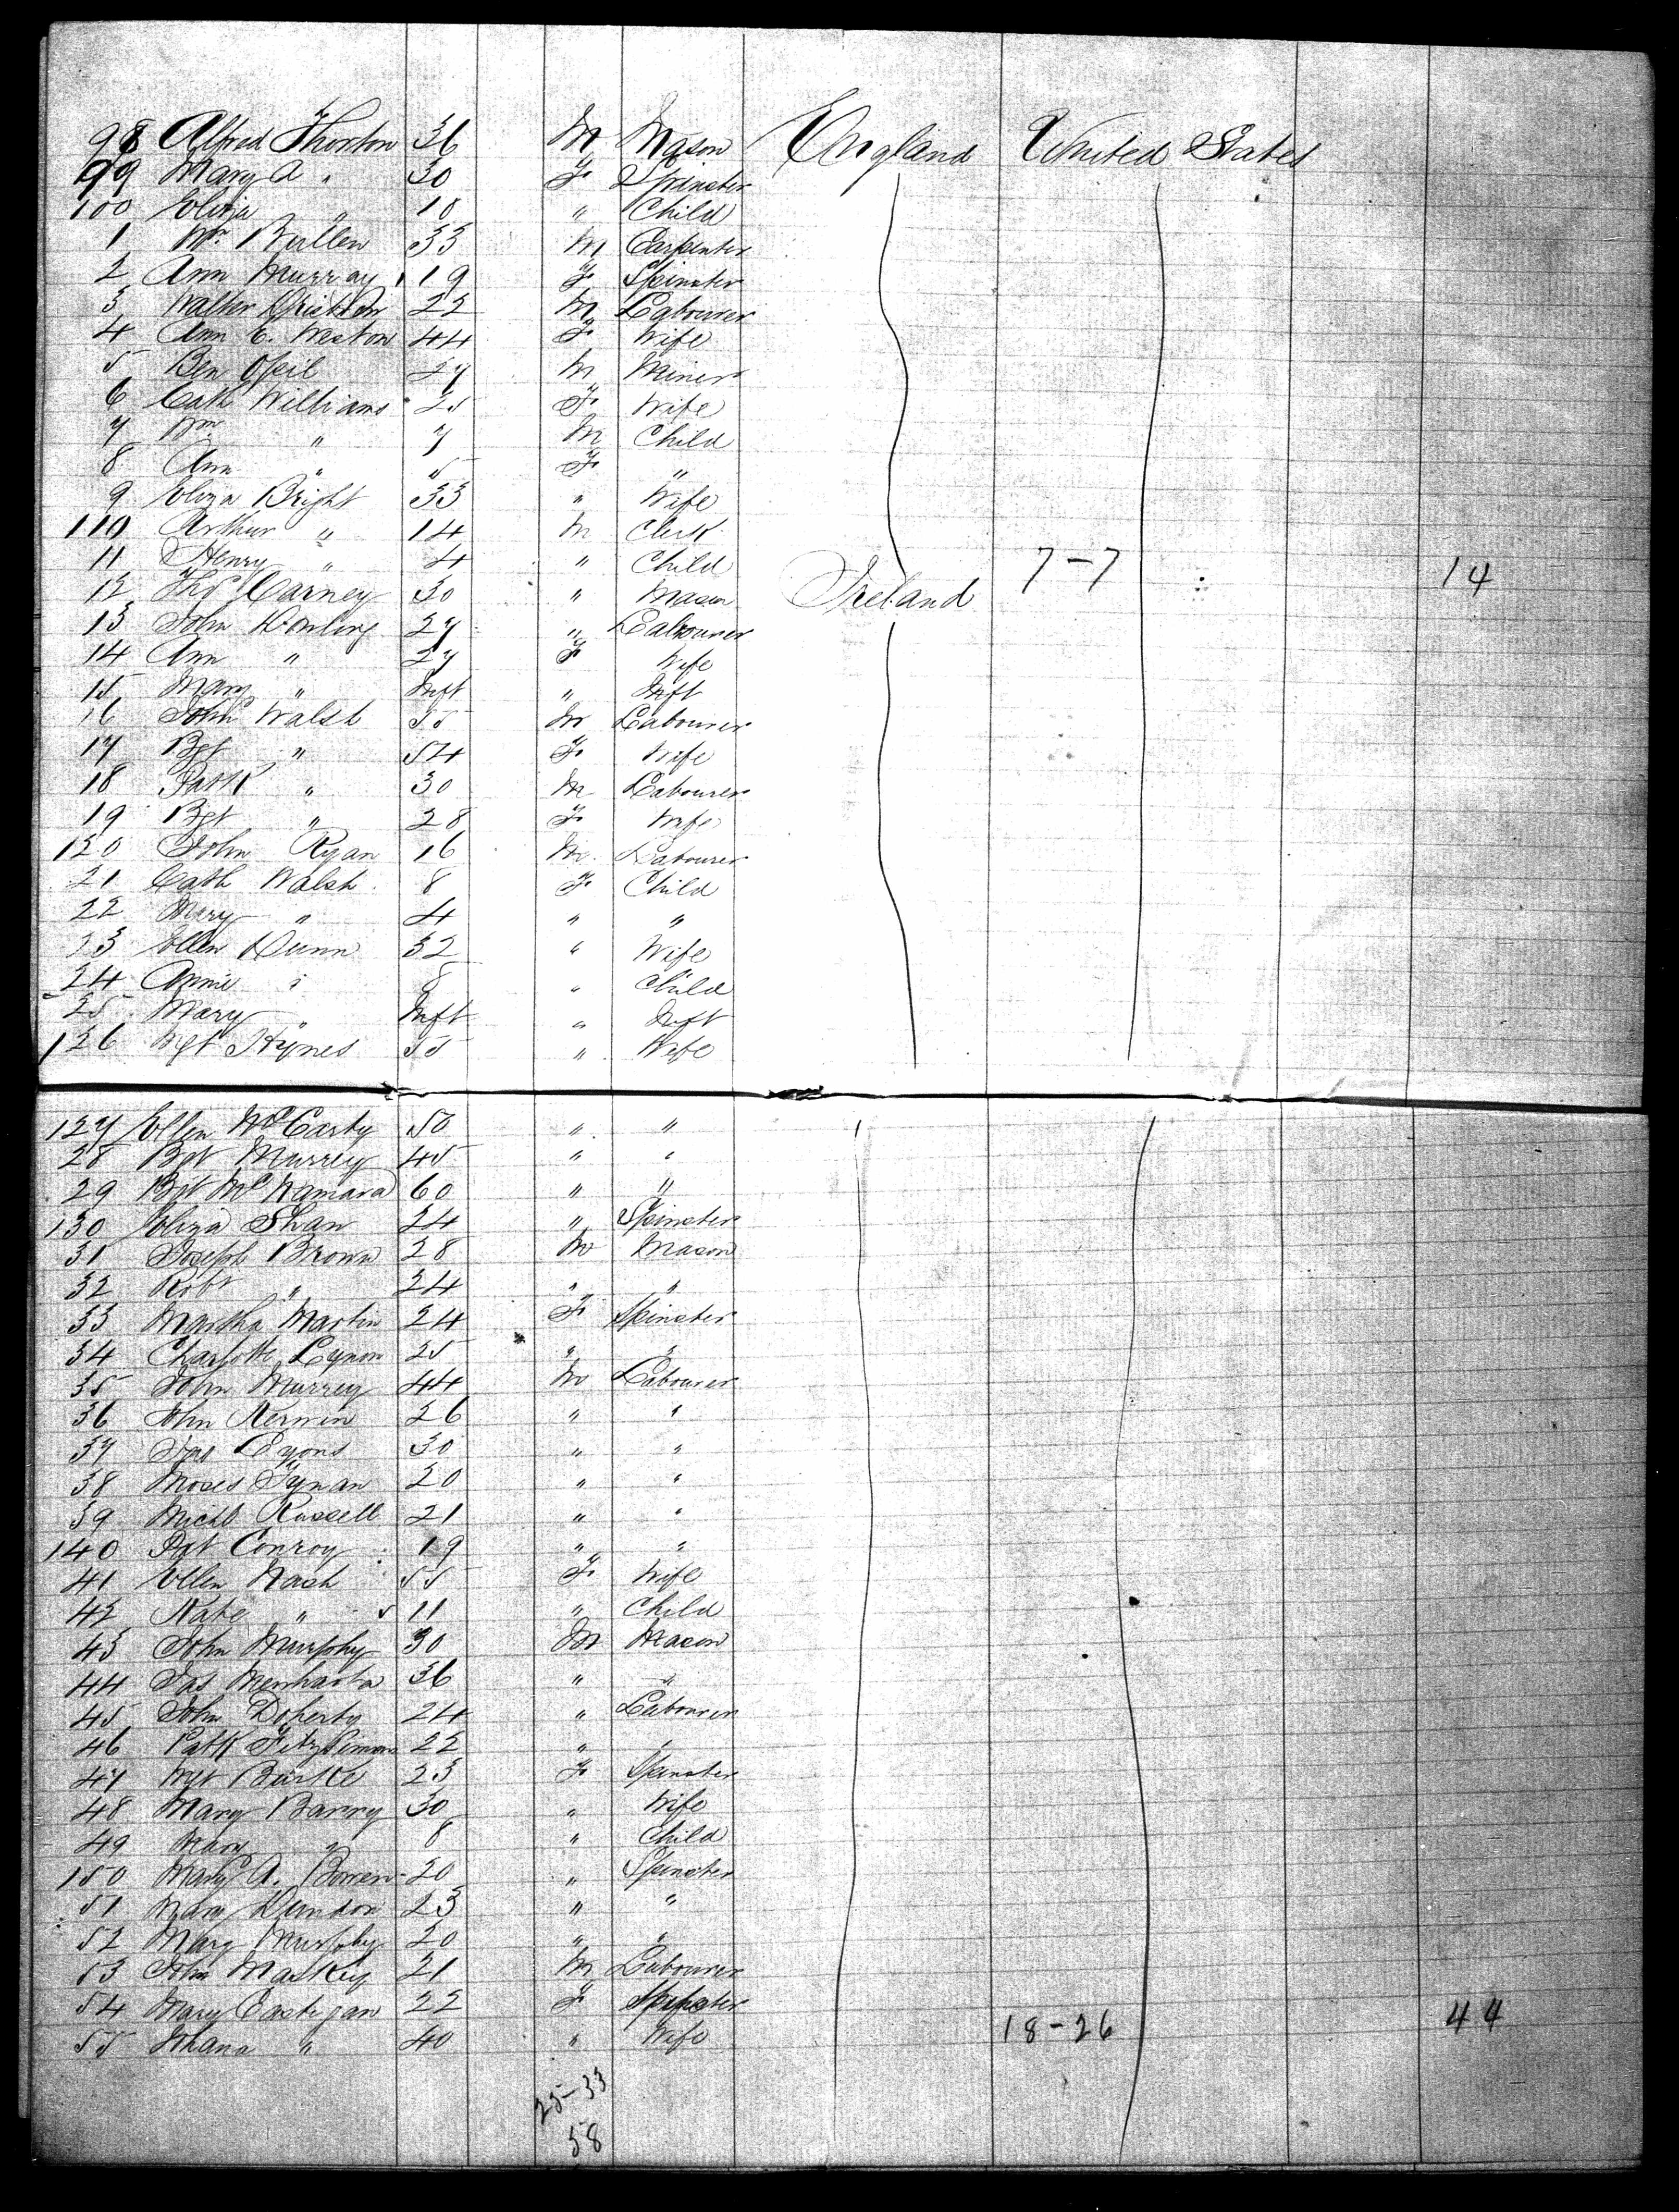 98 Alfred Thorton 36 M Mason England United States
99 Mary A " 30 F Spinster
100 Eliza " 10 " Child
1 Wm Bullen 33 M Carpenter
2 Ann Murray 19 F Spinster
3 Walter 22 M Labourer
4 Ann E. Weston 44 F Wife
5 Ben 27 M Miner
6 Cath Williams 25 F Wife
7 Wm " 7 M Child
8 Ann " 5 F "
9 Eliza Bright 33 " Wife
110 Arthur " 14 M Clerk
11 Henry " 4 " Child 7-7 14
12 Thos Carney 30 " Mason Ireland
13 John Dowling 27 " Labourer
14 Ann " 27 F Wife
15 Mary " Inft " Inft
16 John Walsh 55 M Labourer
17 Bgt " 54 F Wife
18 Patk " 30 M Labourer
19 Bgt " 28 F Wife
120 John Ryan 16 M Labourer
21 Cath Walsh 8 F Child
22 Mary " 4 " "
23 Ellen Dunn 32 " Wife
24 Annie " 8 " Child
25 Mary " Inft " Inft
126 Mgt Hynes 55 " Wife
127 Ellen McCarty 50 " "
28 Bgt Murrey 45 " "
29 Bgt McNamara 60 " "
130 Eliza Shan 24 " Spinster
31 Joseph Brown 28 M Mason
32 Robt " 24 " "
33 Martha Martin 24 F Spinster
34 Charlotte Lynon 25 " "
35 John Murrey 44 M Labourer
36 John Kerwin 26 " "
37 Jas Lyons 30 " "
38 Moses Tynan 20 " "
39 Michl Russell 21 " "
140 Pat Conroy 19 " "
41 Ellen Nash 55 F Wife
42 Kate " 11 " Child
43 John Murphy 30 M Mason
44 Jas 36 " "
45 John Doherty 24 " Labourer
46 Patk FitzSimons 22 " "
47 Mgt Burke 23 F Spinster
48 Mary Barry 30 " Wife
49 Mary " 8 " Child
150 Mary A. Bowen 20 " Spinster
51 Mary Dundon 23 " "
52 Mary Murphy 20 " "
53 John Maskey 21 M Labourer
54 Mary Castigan 22 F Spinster
55 Johana " 40 " Wife 18-26 44
25-33
58